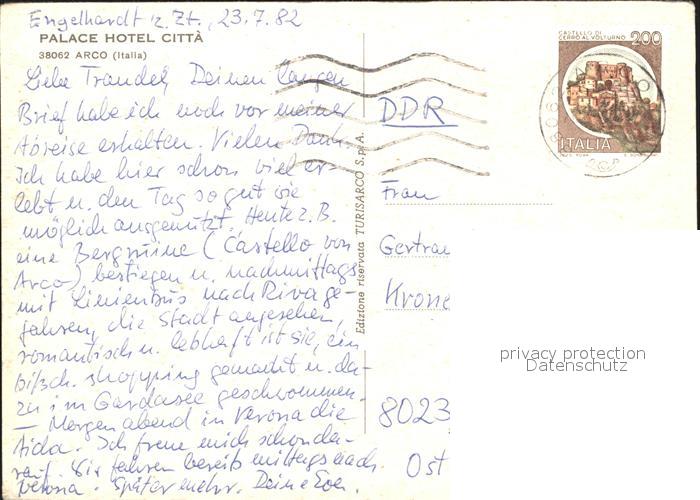 Engelhardt z. Zt., 23.7.82
PALACE HOTEL CITTÀ
38062 ARCO (Italia)
Liebe Traudel, Deinen langen
Brief habe ich noch vor meiner
Abreise erhalten. Vielen Dank.
Ich habe hier schon viel er-
lebt u. den Tag so gut wie
möglich ausgenützt. Heute z. B.
eine Bergruine (Castello von
Arco) bestiegen u. nachmittags
mit Linienbus nach Riva ge-
fahren, die Stadt angesehen,
romantisch u. lebhaft ist sie, ein
bißch. shopping gemacht u. da-
zu im Gardasee geschwommen.
– Morgen abend in Verona die
Aida. Ich freue mich schon da-
rauf. Wir fahren bereits mittags nach
Verona. Später mehr. Deine
Edizione riservata TURISARCO S.p.A.
CASTELLO DI
CERRO AL VOLTURNO 200
ITALIA
DDR
Frau
Gertrau
Krone
8023
Ost
privacy protection
Datenschutz